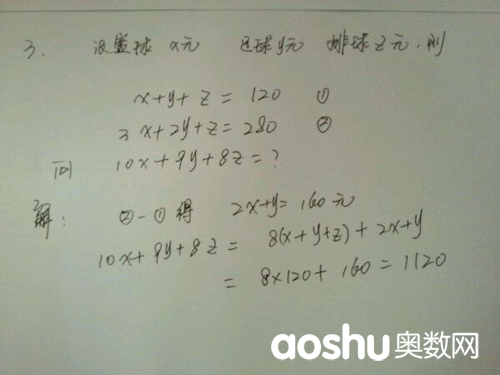 3. 设篮球 x元 足球y元 排球z元.则
x+y+z=120 ①
3x+2y+z=280 ②
问 10x+9y+8z=?
解: ②-①得 2x+y=160元
10x+9y+8z= 8(x+y+z)+2x+y
= 8×120+160=1120
aoshu奥数网